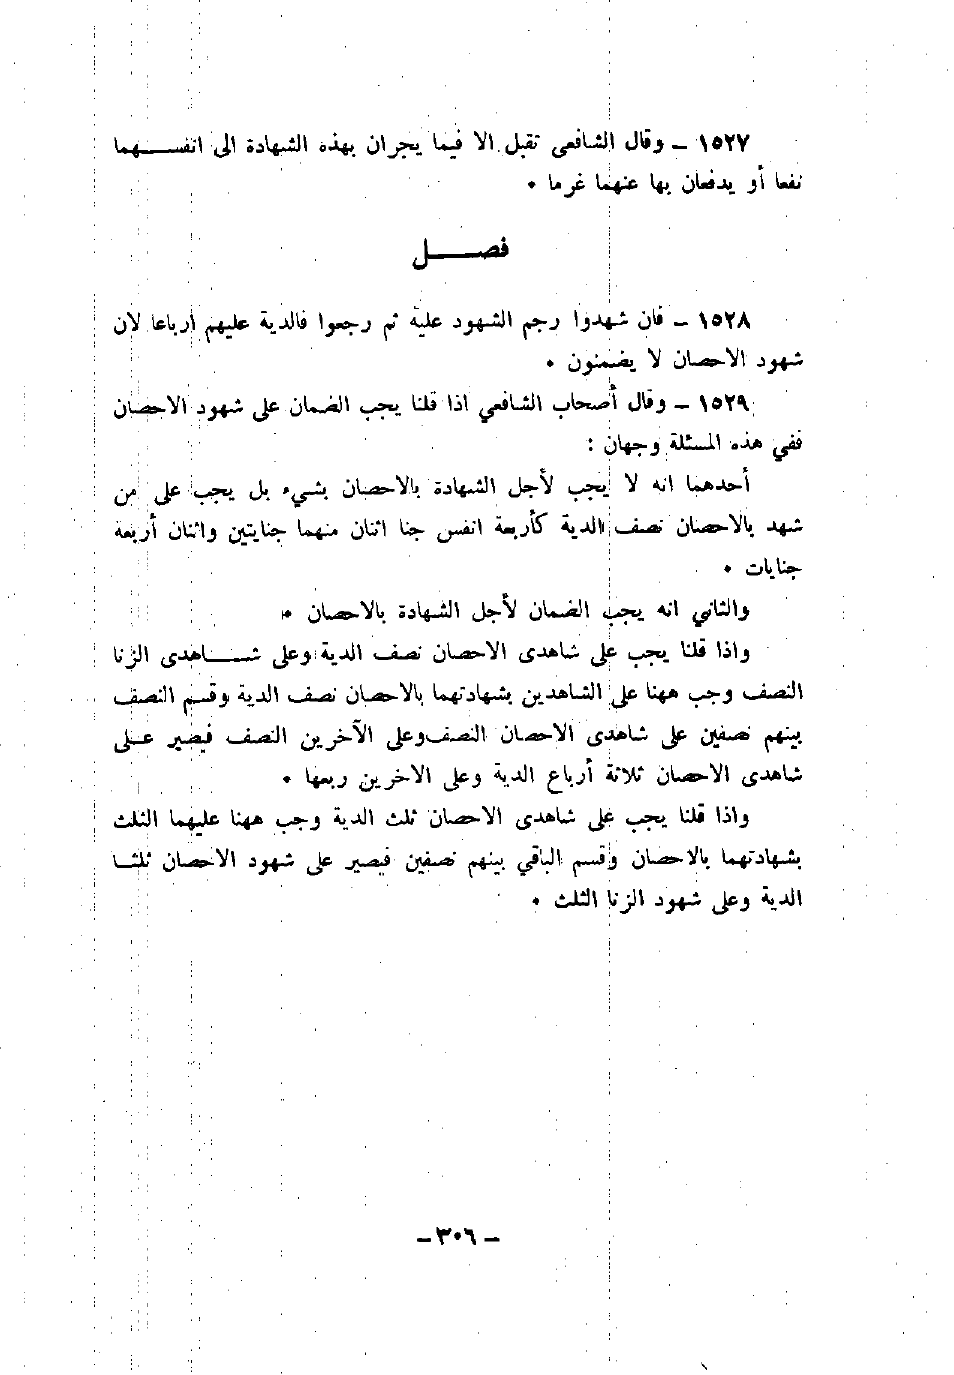 ١٥٢٧ ــ وقال الشافعى تقبل الا فيما يجران بهذه الشهادة الى انفسهما
نفعا أو يدفعان بها عنهما غرما ٠
فصل
١٥٢٨ ــ فان شهدوا رجم الشهود عليه ثم رجعوا فالدية عليهم أرباعا لان
شهود الاحصان لا يضمنون ٠
١٥٢٩ ــ وقال أصحاب الشافعي اذا قلنا يجب الضمان على شهود الاحصان
ففي هذه المسئلة وجهان :
أحدهما انه لا يجب لأجل الشهادة بالاحصان بشيء بل يجب على من
شهد بالاحصان نصف الدية كأربعة انفس جنا اثنان منهما جنايتين واثنان أربعة
جنايات ٠
والثاني انه يجب الضمان لأجل الشهادة بالاحصان ٠
واذا قلنا يجب على شاهدى الاحصان نصف الدية وعلى شاهدى الزنا
النصف وجب ههنا على الشاهدين بشهادتهما بالاحصان نصف الدية وقسم النصف
بينهم نصفين على شاهدى الاحصان النصف وعلى الآخرين النصف فيصير على
شاهدى الاحصان ثلاثة أرباع الدية وعلى الاخرين ربعها ٠
واذا قلنا يجب على شاهدى الاحصان ثلث الدية وجب ههنا عليهما الثلث
بشهادتهما بالاحصان وقسم الباقي بينهم نصفين فيصير على شهود الاحصان ثلثا
الدية وعلى شهود الزنا الثلث ٠
ــ ٣٠٦ ــ